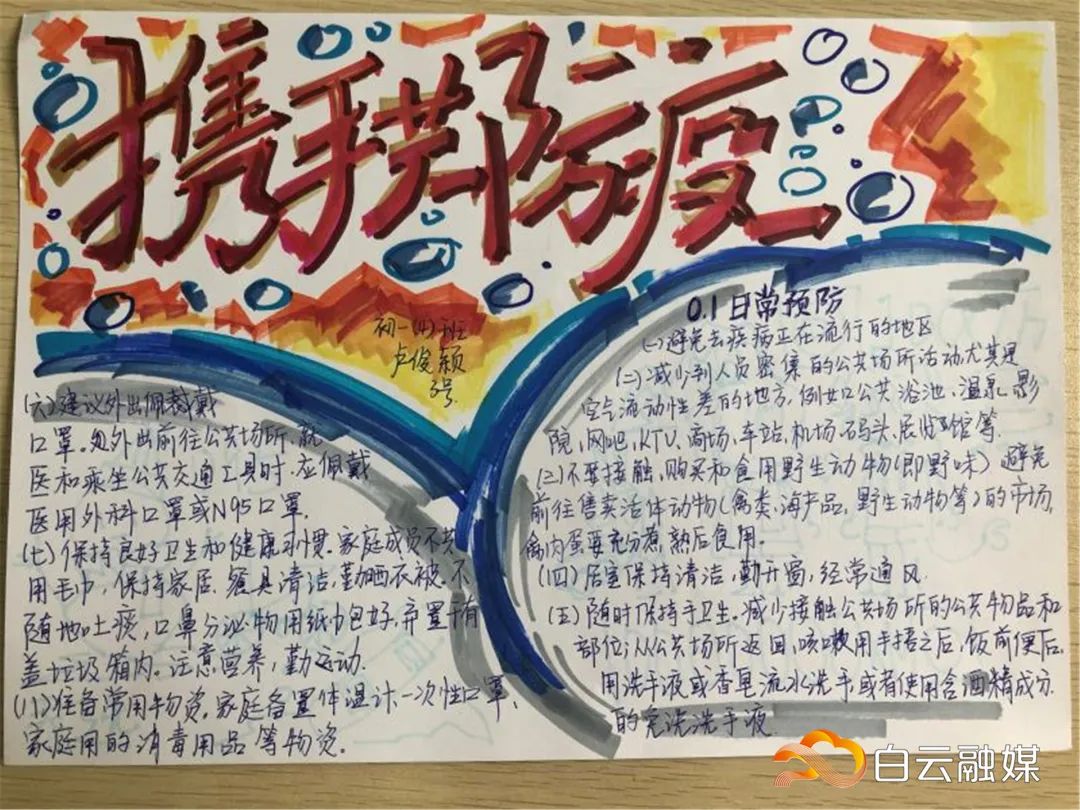 携手共防疫
初一(4)班
卢俊颖
3号
0.1日常预防
(一)避免去疾病正在流行的地区
(二)减少到人员密集的公共场所活动尤其是
空气流动性差的地方,例如公共浴池、温泉、影
院、网吧、KTV、商场、车站、机场、码头、展览馆等.
(三)不要接触、购买和食用野生动物(即野味)避免
前往售卖活体动物(禽类、海产品、野生动物等)的市场,
禽肉蛋要充分煮,熟后食用。
(四)居室保持清洁,勤开窗,经常通风.
(五)随时保持手卫生.减少接触公共场所的公共物品和
部位,从公共场所返回,咳嗽用手捂之后,饭前便后,
用洗手液或香皂流水洗手或者使用含酒精成分
的免洗洗手液.
(六)建议外出佩戴
口罩.外出前往公共场所、就
医和乘坐公共交通工具时.应佩戴
医用外科口罩或N95口罩.
(七)保持良好卫生和健康习惯.家庭成员不共
用毛巾,保持家居、餐具清洁,勤晒衣被.不
随地吐痰,口鼻分泌物用纸巾包好,弃置于有
盖垃圾箱内.注意营养,勤运动.
(八)准备常用物资.家庭备置体温计、一次性口罩、
家庭用的消毒用品等物资.
白云融媒